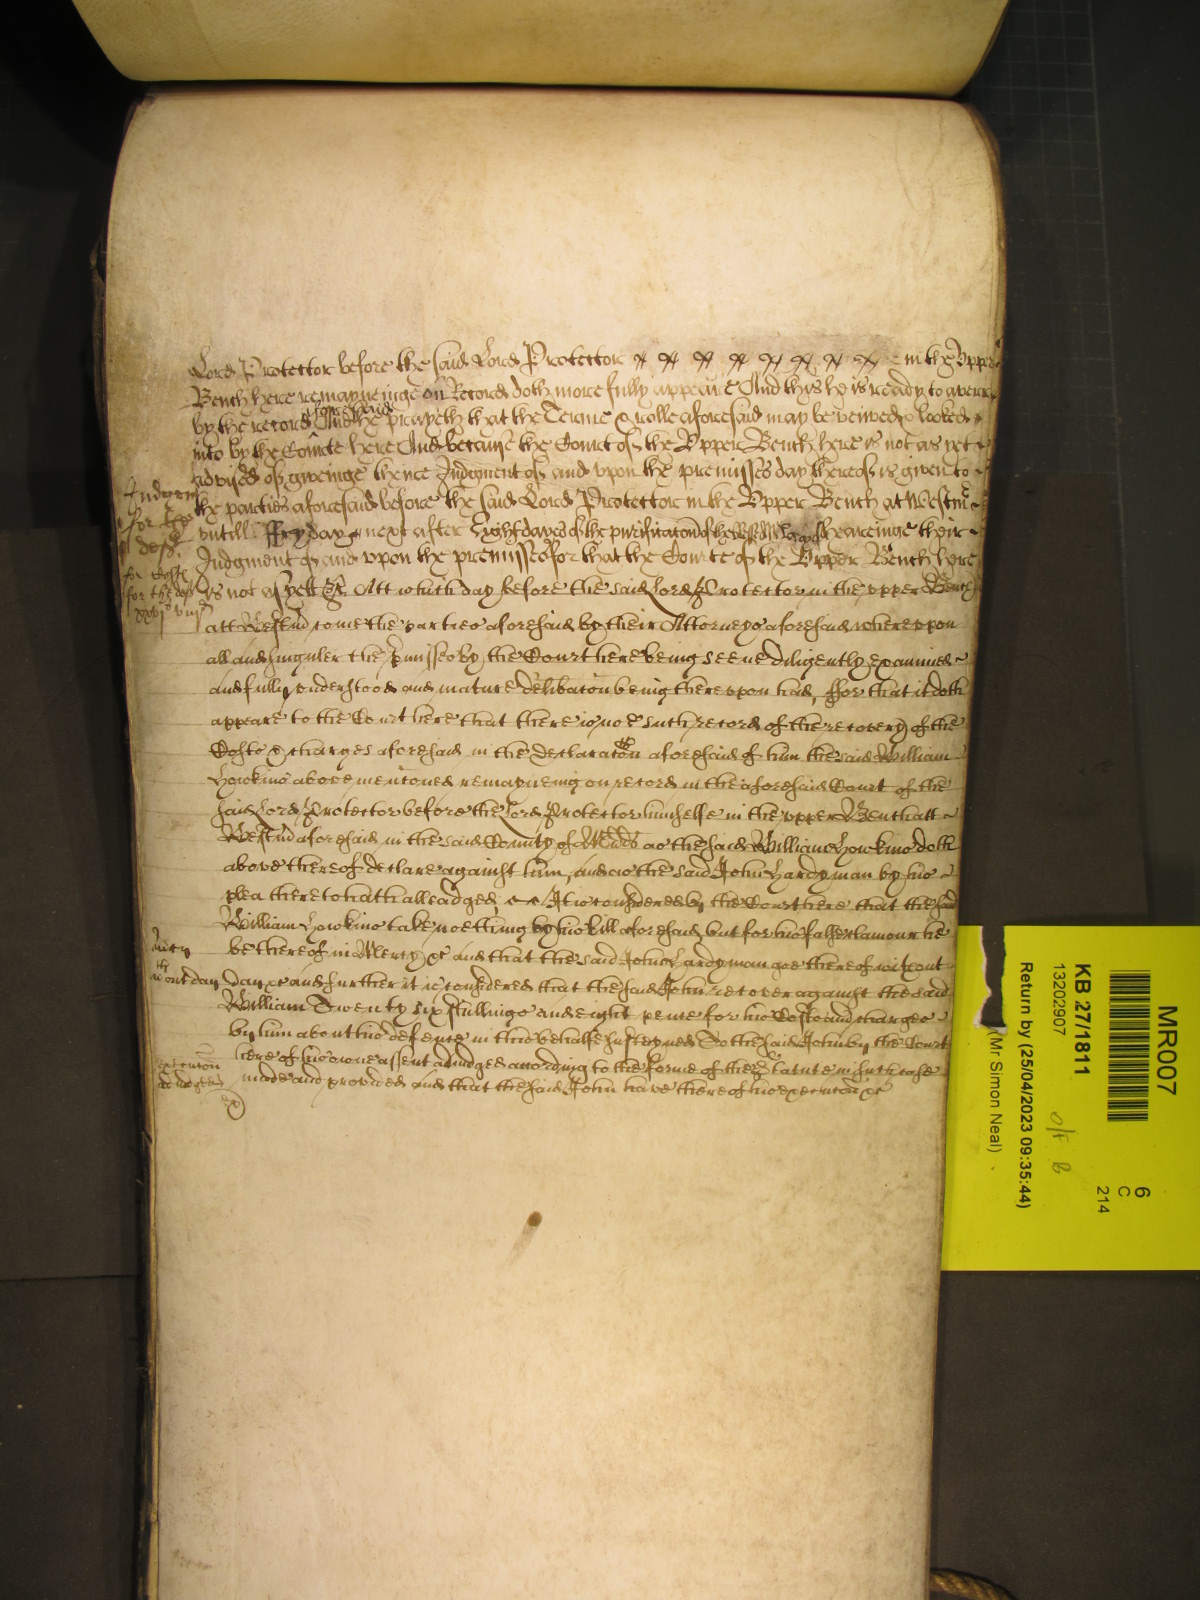 Lord Protector before the said Lord Protector in the Upper
Bench here remayneinge on Record doth more fully appeare And this he is ready to averr
by the record aforesaid And he prayeth that the Terme & rolle aforesaid may be veiwed & looked
into by the Courte here And because the Court of the Upper Bench here is not as yet
advised of giveinge thence Judgment of and upon the premisses day thereof is given to
the parties aforesaid before the said Lord Protector in the Upper Bench at Westmr
untill ffryday next after Eight dayes of the purification of the blessed hearinge their
Judgment of and upon the premisses for that the Courte of the Upper Bench here
is not as yett &c Att which day before the said Lord Protector in the upper Bench
att Westmr come the parties aforesaid by their Attorneys aforesaid whereupon
all and singuler the pmisses by the Court here being seene diligently examined
and fully understood and mature delibacon being thereupon had, ffor that it doth
appeare to the Court here that there is noe such record of the recovery of the
Costs & charges aforesaid in the declaracon aforesaid of him the said William
Howkins above mencioned remayneing on record in the aforesaid Court of the
said Lord Protector before the Lord Protector himselfe in the upper Bench att
Westmr aforesaid in the said County of Midds as the said William Howkins doth
above thereof declare against him, and as the said John Hardyman by his
plea thereto hath alleadged, It is considered by the Court here that the said
William Howkins take nothing by his bill aforesaid but for his false clamour he
be thereof in Mercy &c and that the said John Hardyman goe thereof without
day &c and further it is considered that the said John recover against the said
William Twenty six shillings and eight pence for his Costs and charges
by him about his defence in this behalfe susteyned To the said John by the Court
here of his owne assent adiudged according to the forme of the Statute in such case
made and provided and that the said John have thereof his execucon &c
Judgmt
for the
deft
for Costs
for the deft
Mercy
without day
execucon
MR007
6
C
214
KB 27/1811
13202907
Return by (25/04/2023 09:35:44)
(Mr Simon Neal)